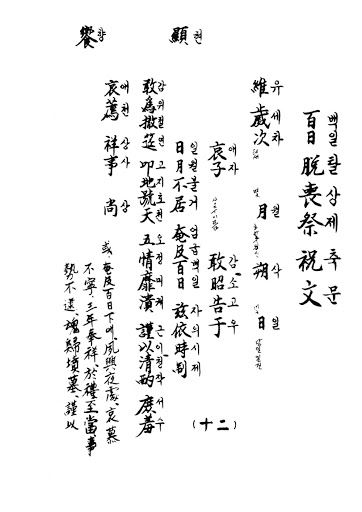 百日脫喪祭祝文
백일탈상제축문
維歲次 月 朔 日
유세차 월 사 일
哀子 敢昭告于
애자 감소고우
顯
현
日月不居 奄及百日 玆依時制
일월불거 엄급백일 자의시제
敢爲撤筵 叩地號天 五情靡潰 謹以清酌 庶羞
감위철연 고지호천 오정미궤 근이청작 서수
哀薦 祥事 尚
애천 상사 상
饗
향
或、奄及百日下에、夙興夜處、哀慕
不寧、三年奉祥、於禮至當、事
勢不逮、魂歸墳墓、謹以
(十二)